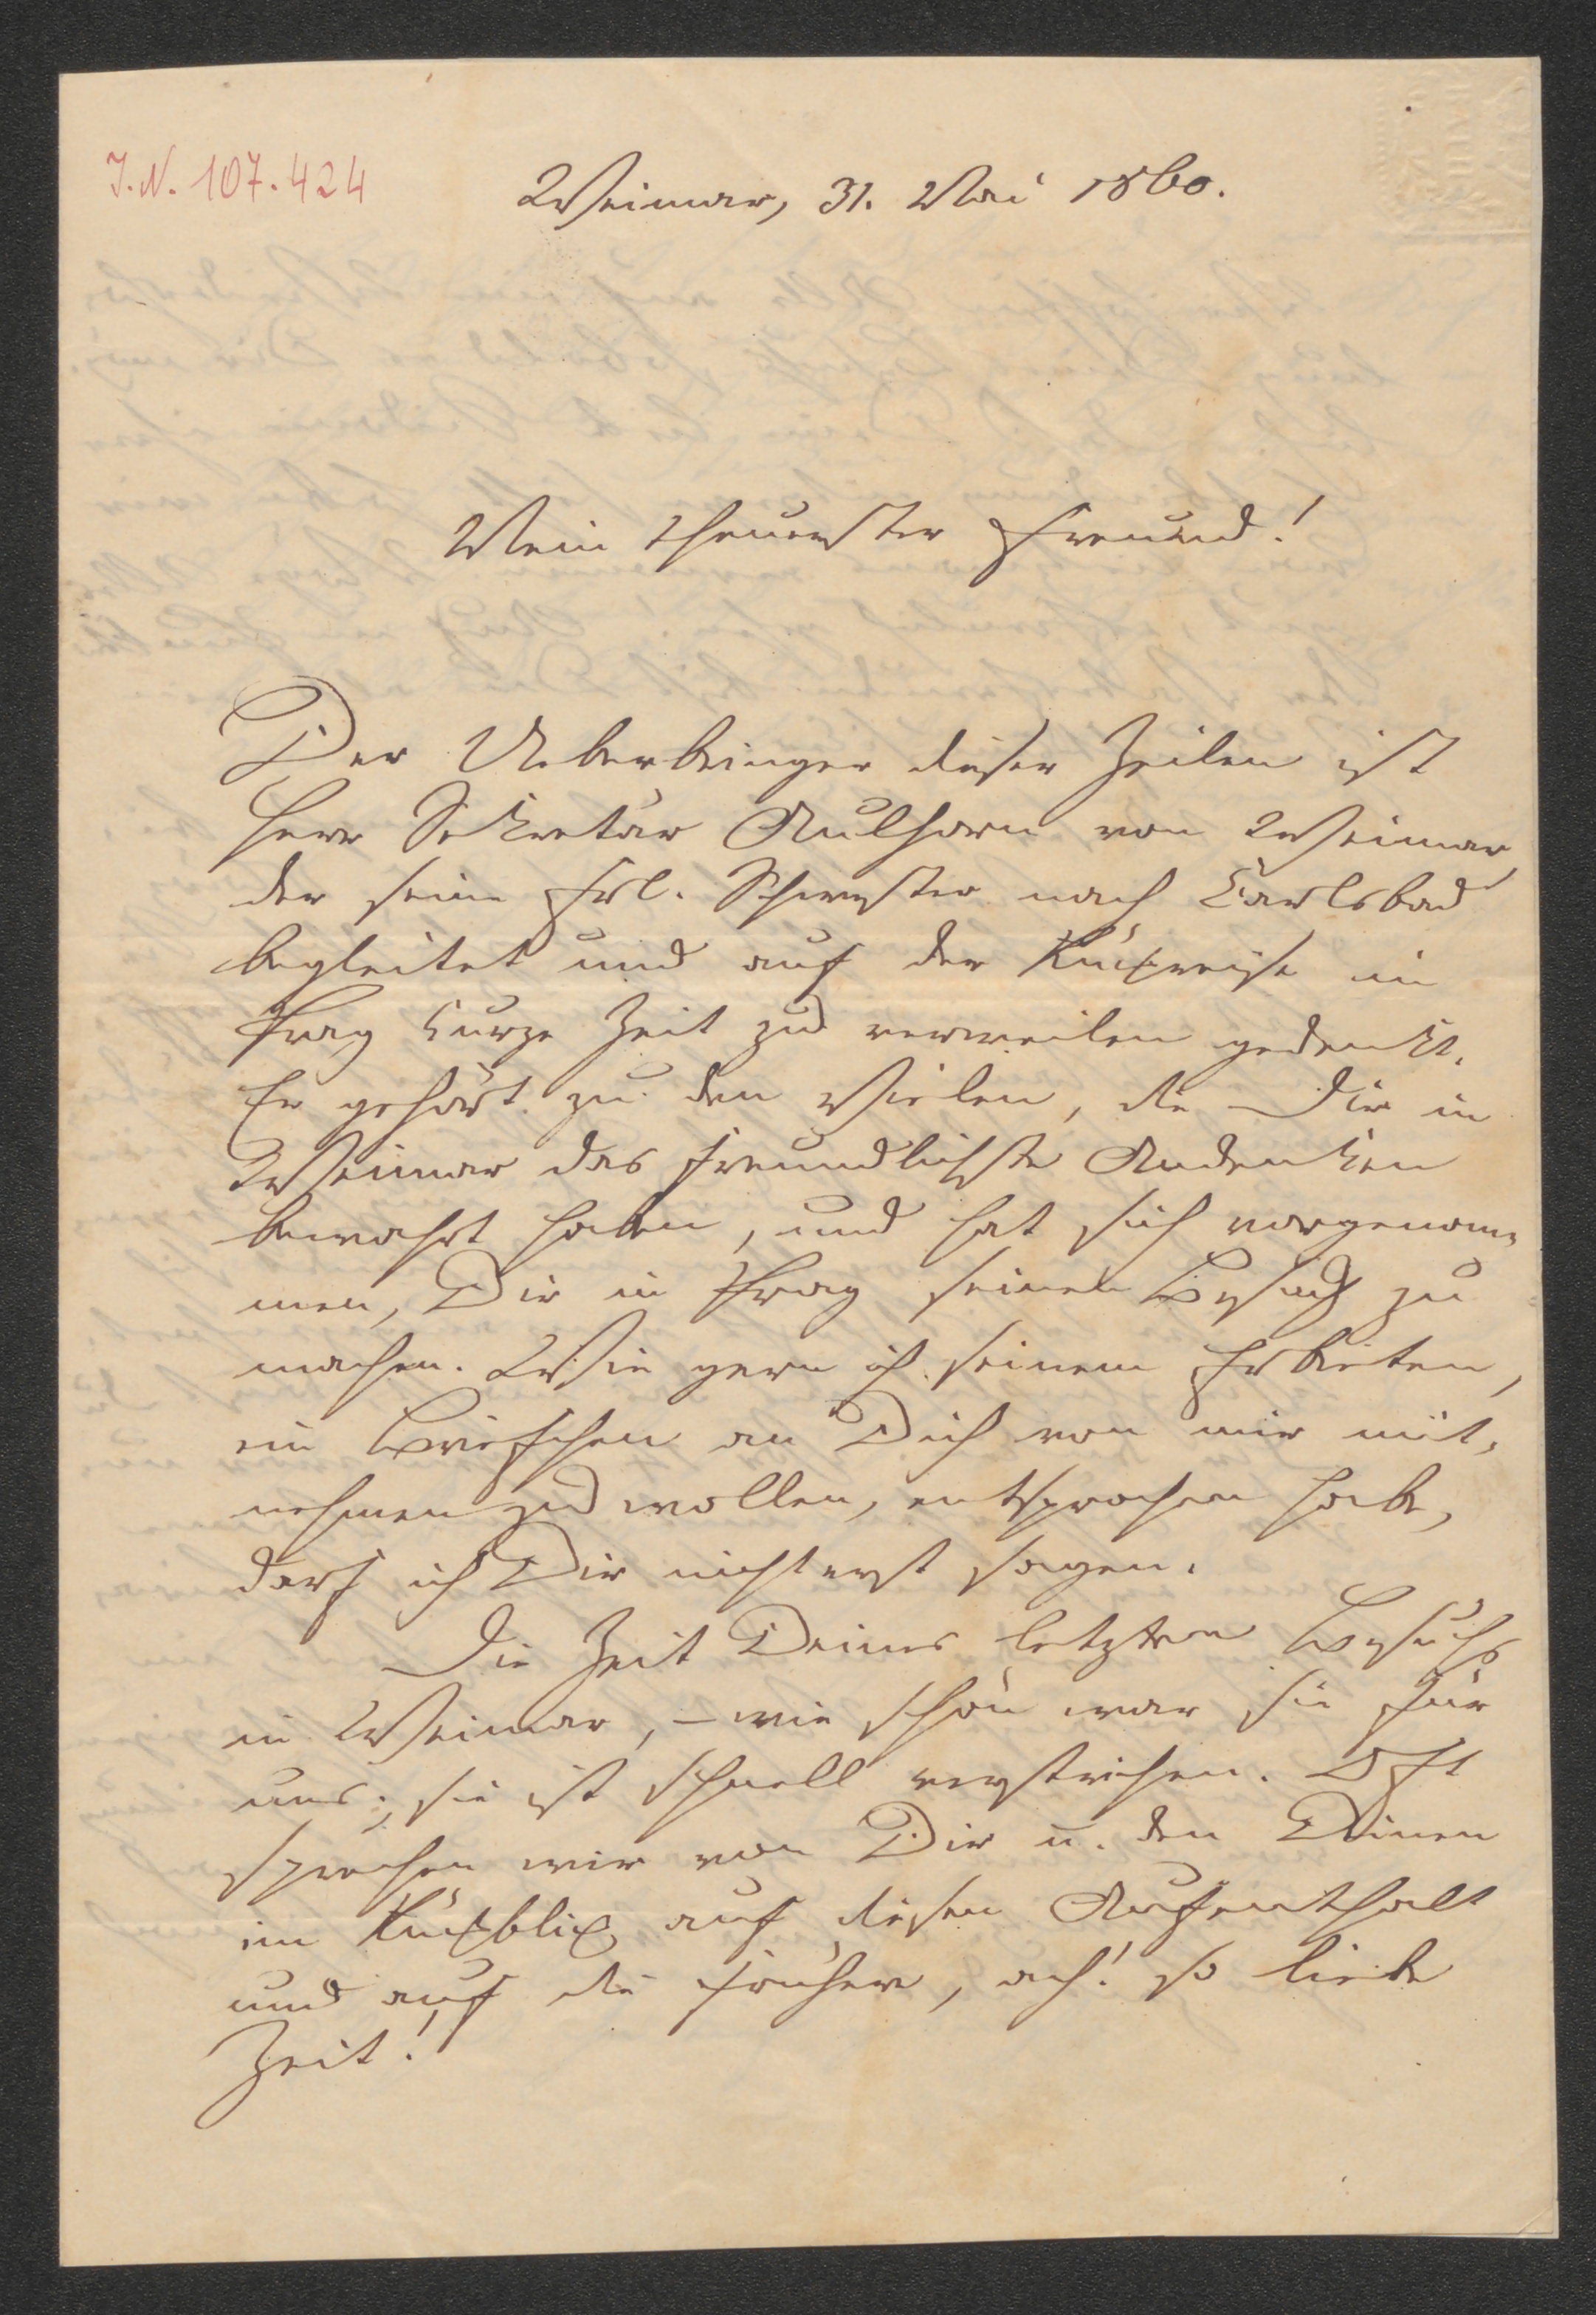 J.N. 107.424
Weimar, 31. Mai 1860.
Mein theuerster Freund!
Der Ueberbringer dieser Zeilen ist
Herr Sekretär Aulhorn von Weimar,
der seine Frl. Schwester nach Carlsbad
begleitet und auf der Rückreise in
Prag kurze Zeit zu verweilen gedenkt.
Er gehört zu den Vielen, die Dir in
Weimar das freundlichste Andenken
bewahrt haben, und hat sich vorgenom-
men, Dir in Prag seinen Besuch zu
machen. Wie gern ich seinem Erbieten,
ein Briefchen an Dich von mir mit-
nehmen zu wollen, entsprochen habe,
darf ich Dir nicht erst sagen.
Die Zeit Deines letzten Besuchs
in Weimar, – wie schön war sie für
uns; sie ist schnell verstrichen. Oft
sprechen wir von Dir u. den Deinen
im Rückblick auf diesen Aufenthalt
und auf die frühere, ach! so liebe
Zeit!